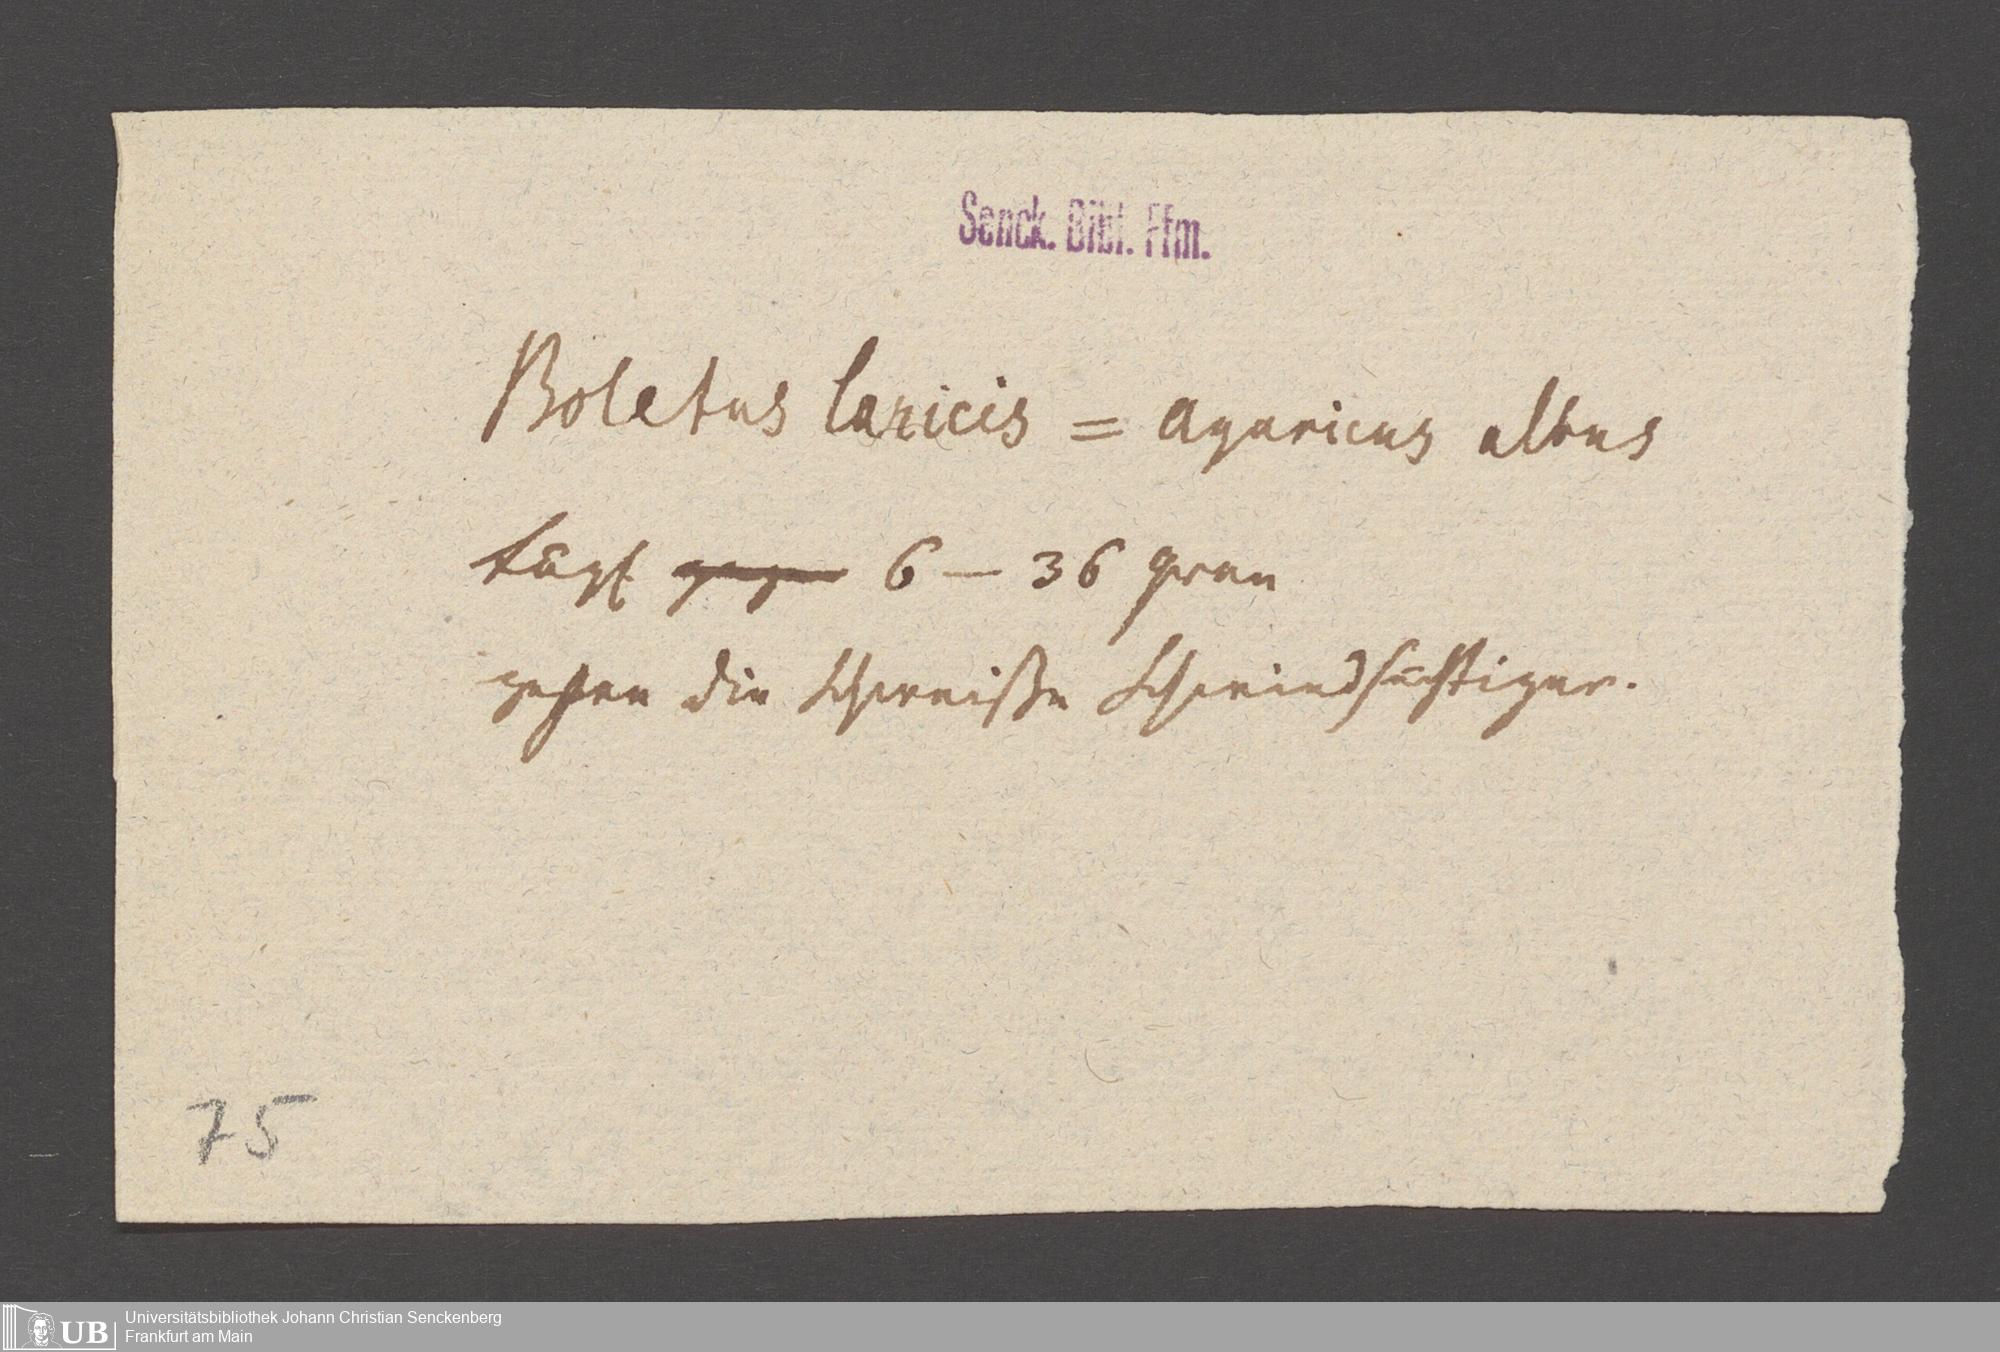 Senck. Bibl. Ffm.
Boletus laricis = Agaricus albus
tägl. gegen 6 — 36 gran
gegen die Schweiße Schwindsüchtiger.
75
UB
Universitätsbibliothek Johann Christian Senckenberg
Frankfurt am Main